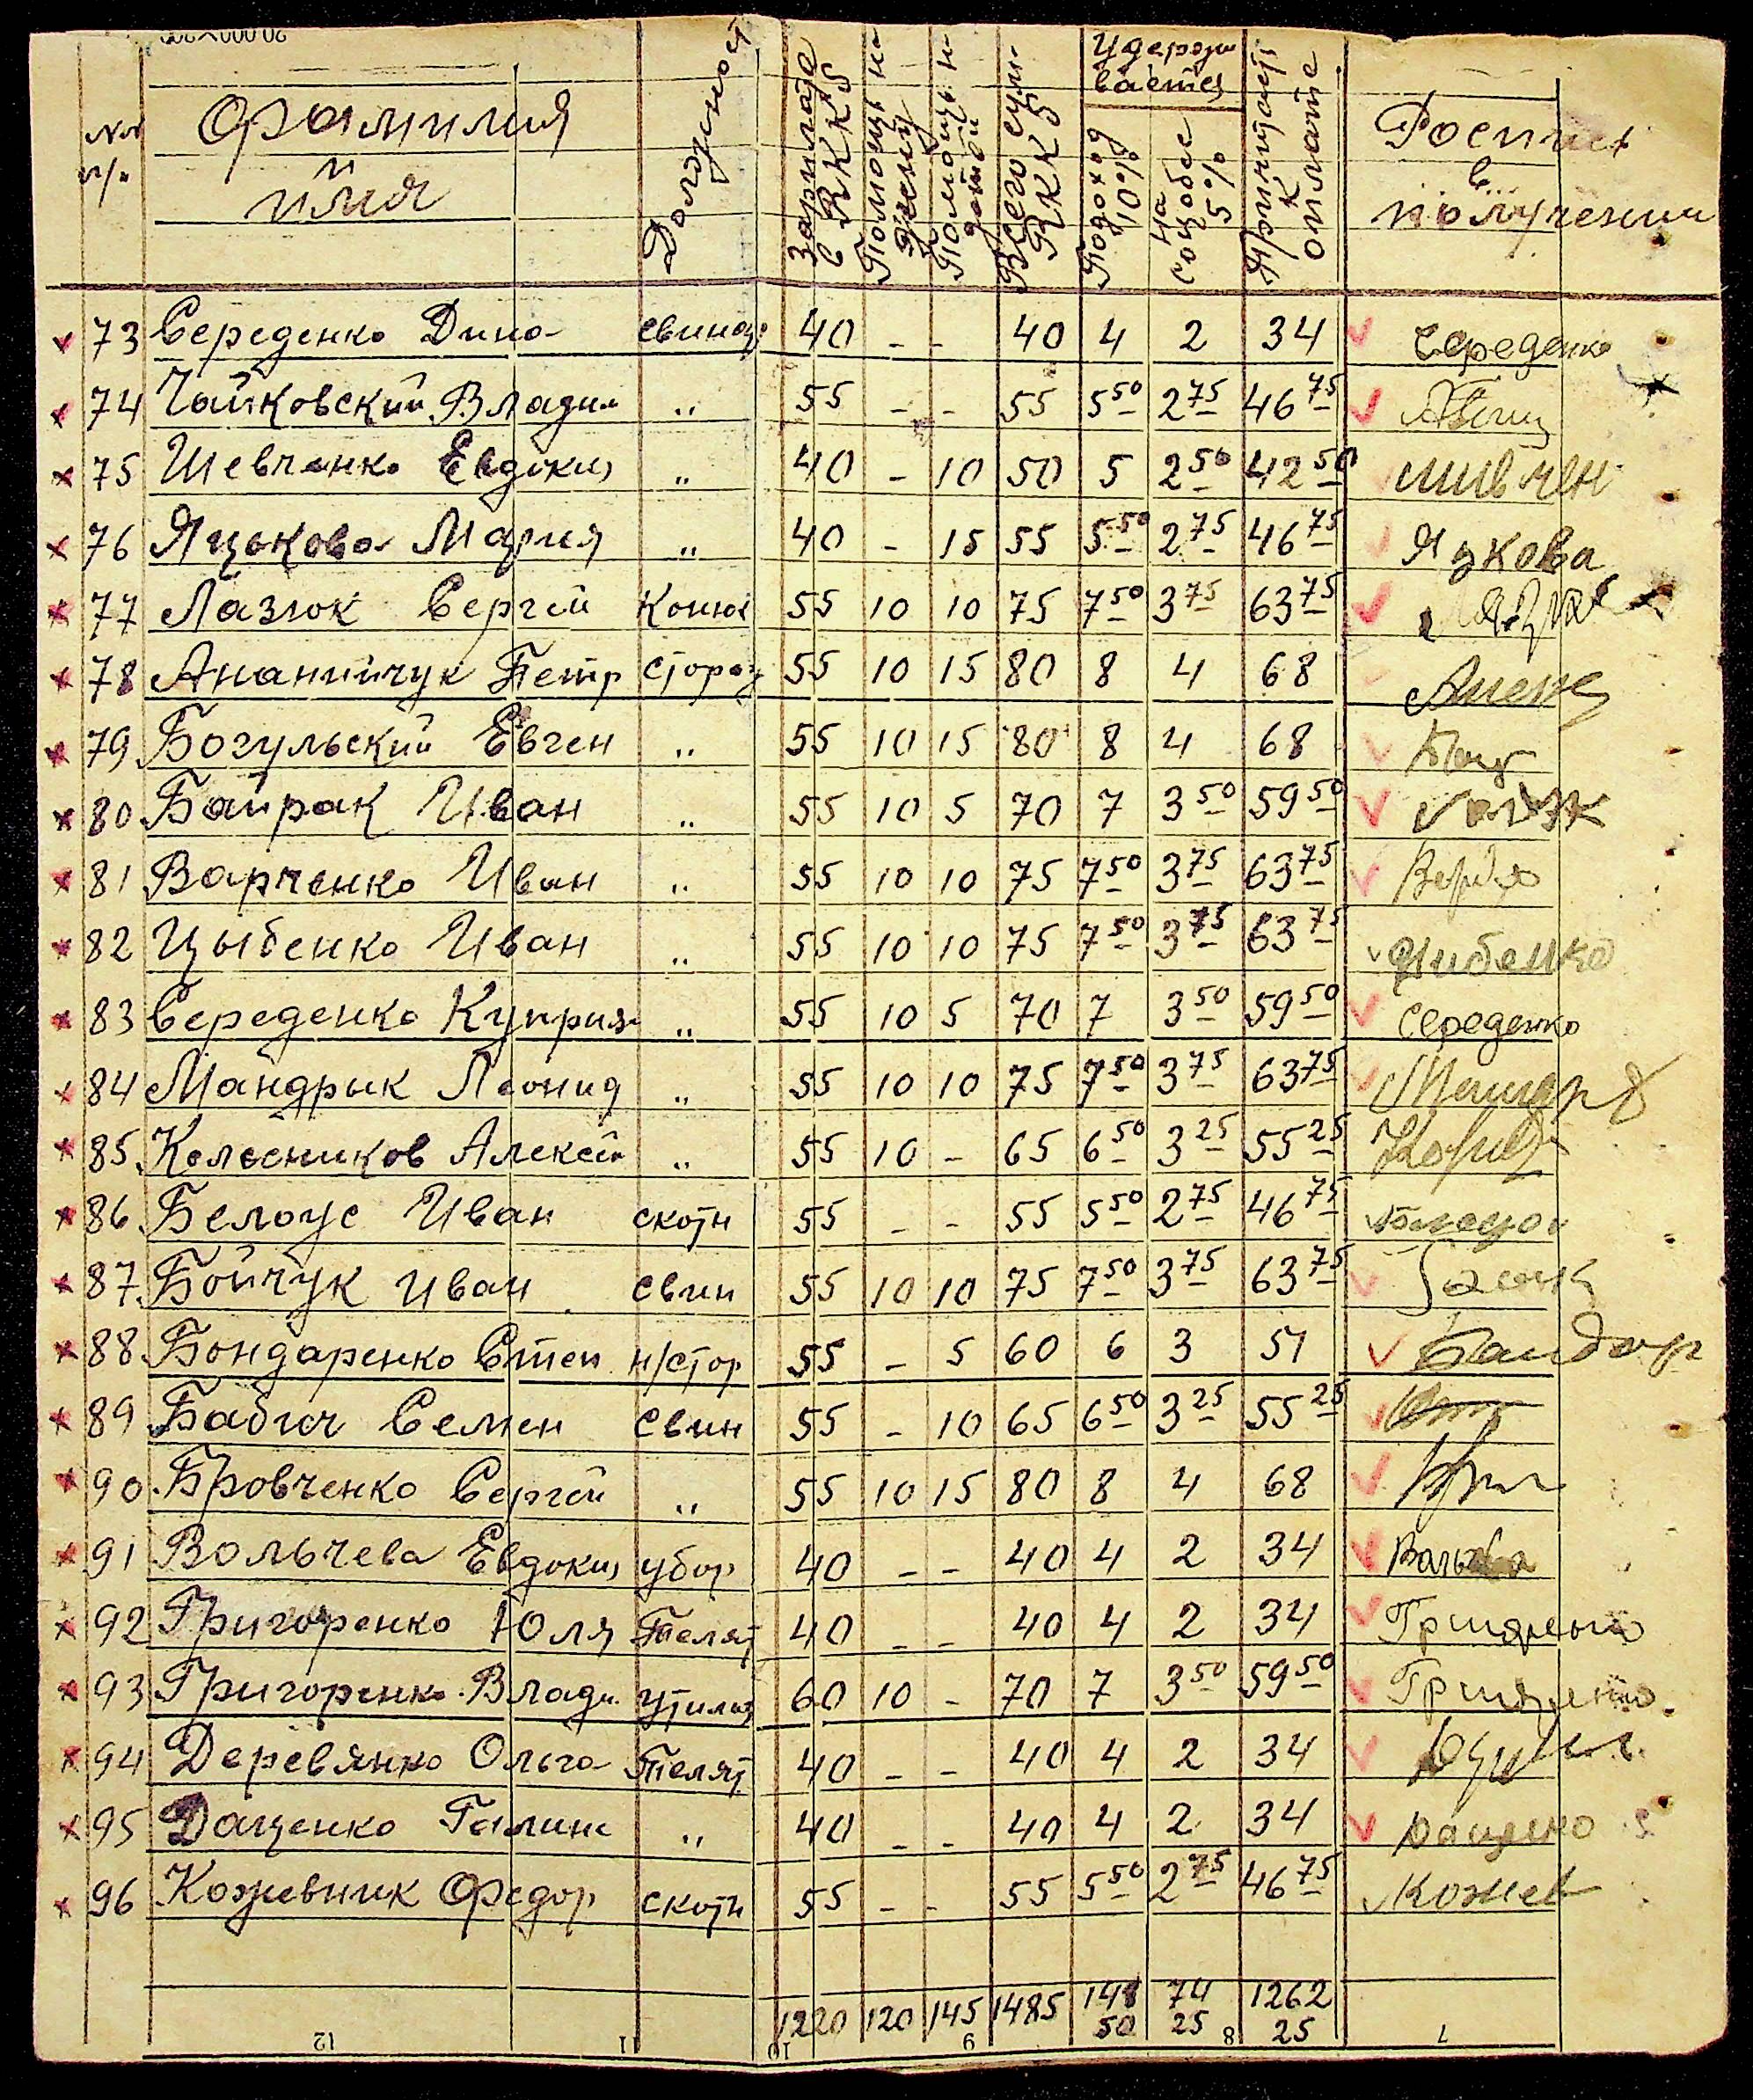 №№ п/п Фамилия и имя Должност Зарплата в RKKS Помощь на жену Помощь на детей Всего сум. RKKS Удерживается Подоход 10% на соцобес 5% Причитает к оплате Роспись в получении
73 Середенко Дина свинар 40 - - 40 4 2 34 Середенко
74 Чайковский Владим " 55 - - 55 5 50 2 75 46 75
75 Шевченко Евдокия " 40 - 10 50 5 2 50 42 50 Шивчен
76 Яцькова Мария " 40 - 15 55 5 50 2 75 46 75 Яцкова
77 Лазюк Сергей Конюх 55 10 10 75 7 50 3 75 63 75
78 Ананийчук Петр сторож 55 10 15 80 8 4 68
79 Богульский Евген " 55 10 15 80 8 4 68
80 Байрак Иван " 55 10 5 70 7 3 50 59 50
81 Варченко Иван " 55 10 10 75 7 50 3 75 63 75
82 Цыбенко Иван " 55 10 10 75 7 50 3 75 63 75 Цибенко
83 Середенко Куприян " 55 10 5 70 7 3 50 59 50 Середенко
84 Мандрык Леонид " 55 10 10 75 7 50 3 75 63 75
85 Колесников Алексей " 55 10 - 65 6 50 3 25 55 25
86 Белоус Иван скотн 55 - - 55 5 50 2 75 46 75
87 Бойчук Иван свин 55 10 10 75 7 50 3 75 63 75
88 Бондаренко Степ н/стор 55 - 5 60 6 3 51 Бандар
89 Бабич Семен свин 55 - 10 65 6 50 3 25 55 25
90 Бровченко Сергей " 55 10 15 80 8 4 68
91 Вольчева Евдокия убор 40 - - 40 4 2 34
92 Григоренко Юля Телят 40 - - 40 4 2 34
93 Григоренко Влади. утилиз 60 10 - 70 7 3 50 59 50
94 Деревянко Ольга Телят 40 - - 40 4 2 34
95 Даценко Галина " 40 - - 40 4 2 34 Даценко
96 Кожевник Федор скотн 55 - - 55 5 50 2 75 46 75 Кожев
1220 120 145 1485 148 50 74 25 1262 25
12 11 10 9 8 7